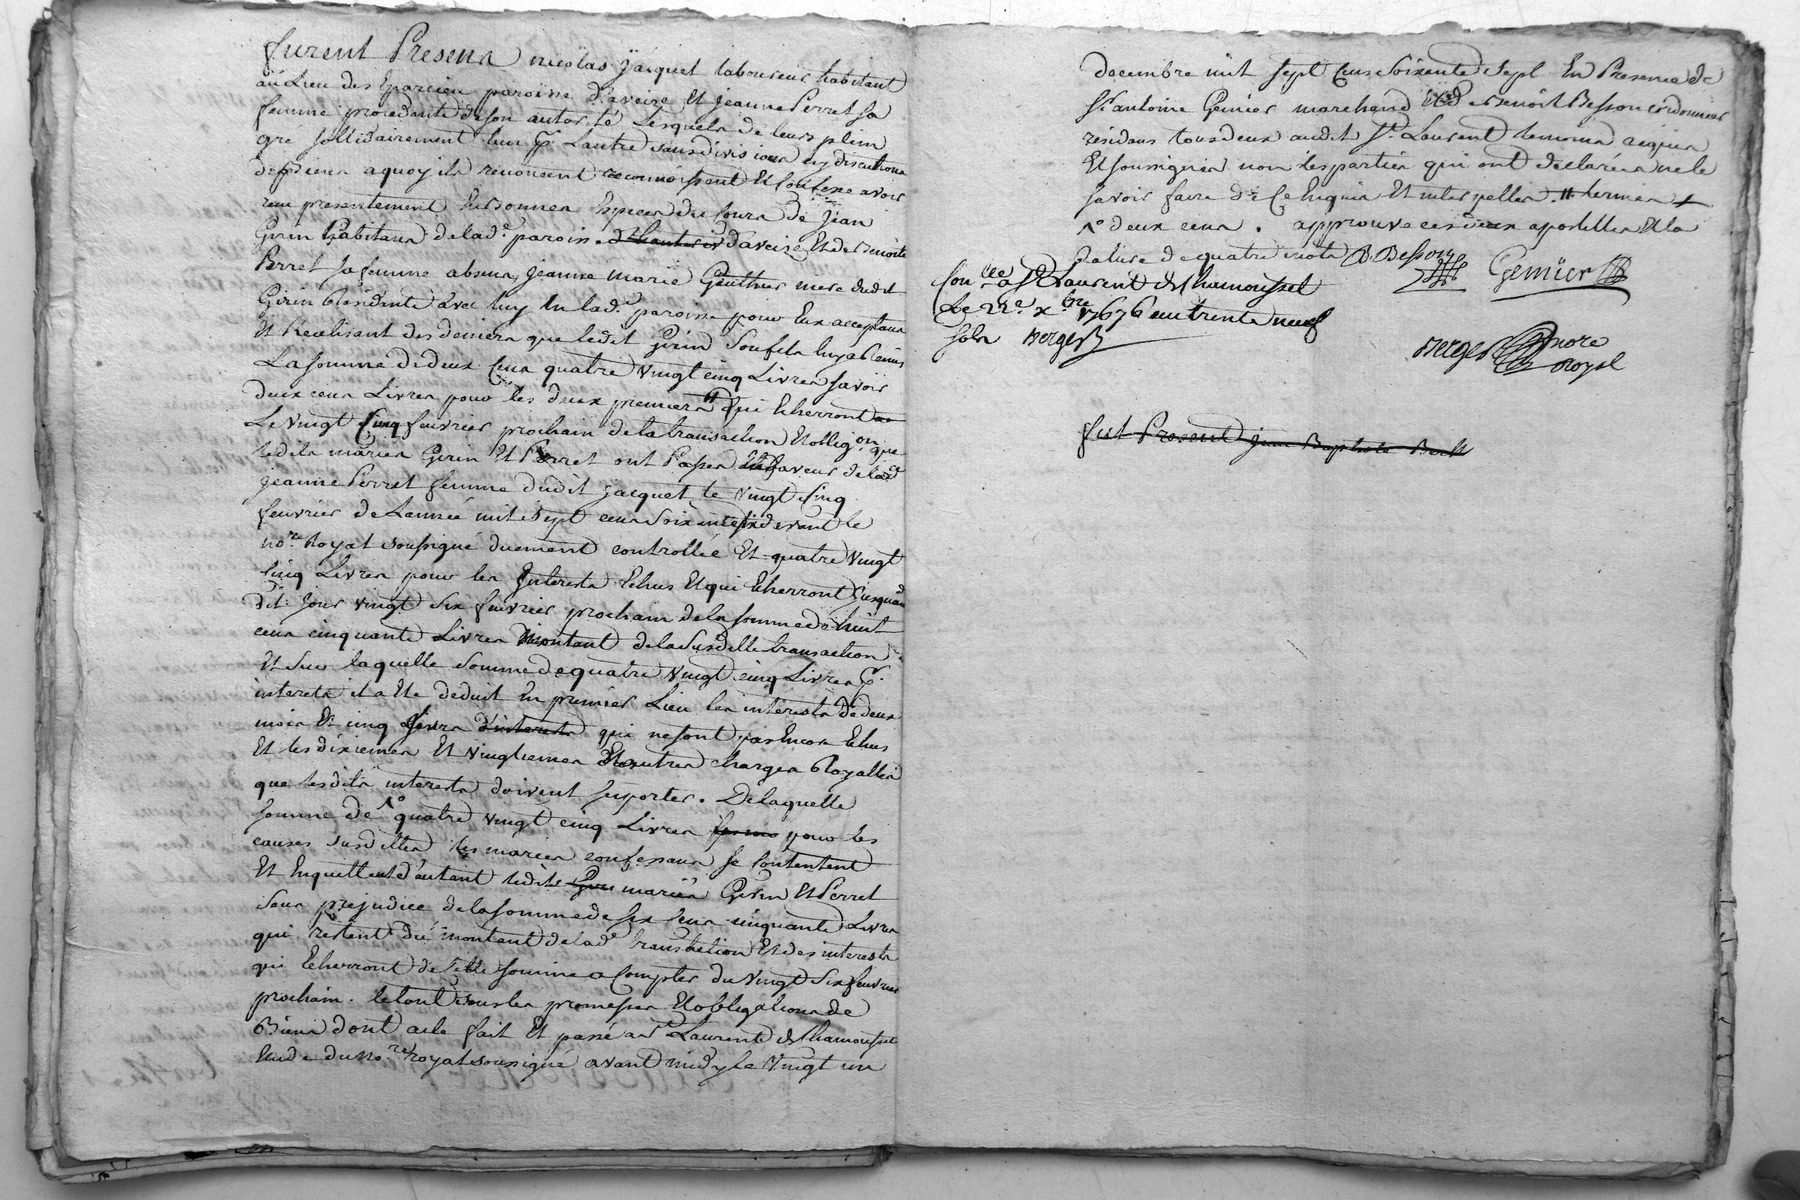 furent Presens nicolas jacquet laboureur habitant
au Lieu des Eparcieu paroisse d'aveize Et jeanne Perret sa
femme procedante de son autorité Lesquels de leurs plein
gré sollidairement l'un pr. Lautre sans division ny discution
de Biens a quoy ils renoncent reconnoissent Et Confesse avoir
reçu presentement En bonnes Especes du Cours de Jean
Girin habitant de lad.e paroisse d'aveize Et de Benoite
Perret sa femme absens, jeanne marie Gauthier mere dudit
Girin Residante avec luy En lad.e paroisse pour Eux acceptant
Et Realisant des deniers que ledit Girin Son fils luy a Remis
La somme de deux Cens quatre vingt cinq Livres savoir
deux cens Livres pour les deux premiers # qui Echerront
Le vingt Cinq fevrier prochain de la transaction Et oblig.on que
lesdits mariés Girin Et Perret ont Passés En faveur de lad.
jeanne Perret femme dudit jacquet le vingt Cinq
fevrier de Lannée mil Sept cens Soixante six devant le
no.re Royal soussigné duement controllée Et quatre vingt
Cinq Livres pour les Interests Echus Et qui Echerront jusquau
dit jour vingt Six fevrier prochain de la somme de huit
cens cinquante Livres montant de la Susditte transaction
Et Sur laquelle Somme de quatre vingt cinq Livres pr.
interets il a Eté deduit En premier Lieu les interests de deux
mois Et cinq jours d'interests qui ne sont pas Encor Echus
Et les dixiemes Et vingtiemes Et autres charges Royalles
que lesdits interests doivent suporter. De laquelle
somme de ^ quatre vingt cinq Livres pour les
causes susdittes les mariés confessans se Contentent
Et En quittent d'autant lesdits mariés Girin Et Perret
Sans prejudice de la somme de six Cens cinquante Livres
qui restent du montant de lad.e transaction Et des interests
qui Echerront de cette somme a Compter du vingt Six fevrier
prochain. le tout sous les promesses Et obligations de
Biens dont acte fait Et passé a St Laurent de Chamousset
Etude du no.re royal soussigné avant midy le vingt un
decembre mil sept Cens Soixante Sept En Presence de
Sr. antoine Gemier marchand Et de Benoit Besson cordonnier
résidans tous deux audit St. Laurent temoins requis
Et soussignés non les parties qui ont declarées ne le
savoir faire de Ce Enquis Et interpellés. # termes +
^ deux cens. approuve ces deux apostilles Et la
rature de quatre mots B. Besson Gemier
Con.lée a St Laurent de Chamousset
Le 22e xbre 1767 trente neuf
sols Berger
Berger nore
royal
fut Present jean Baptiste